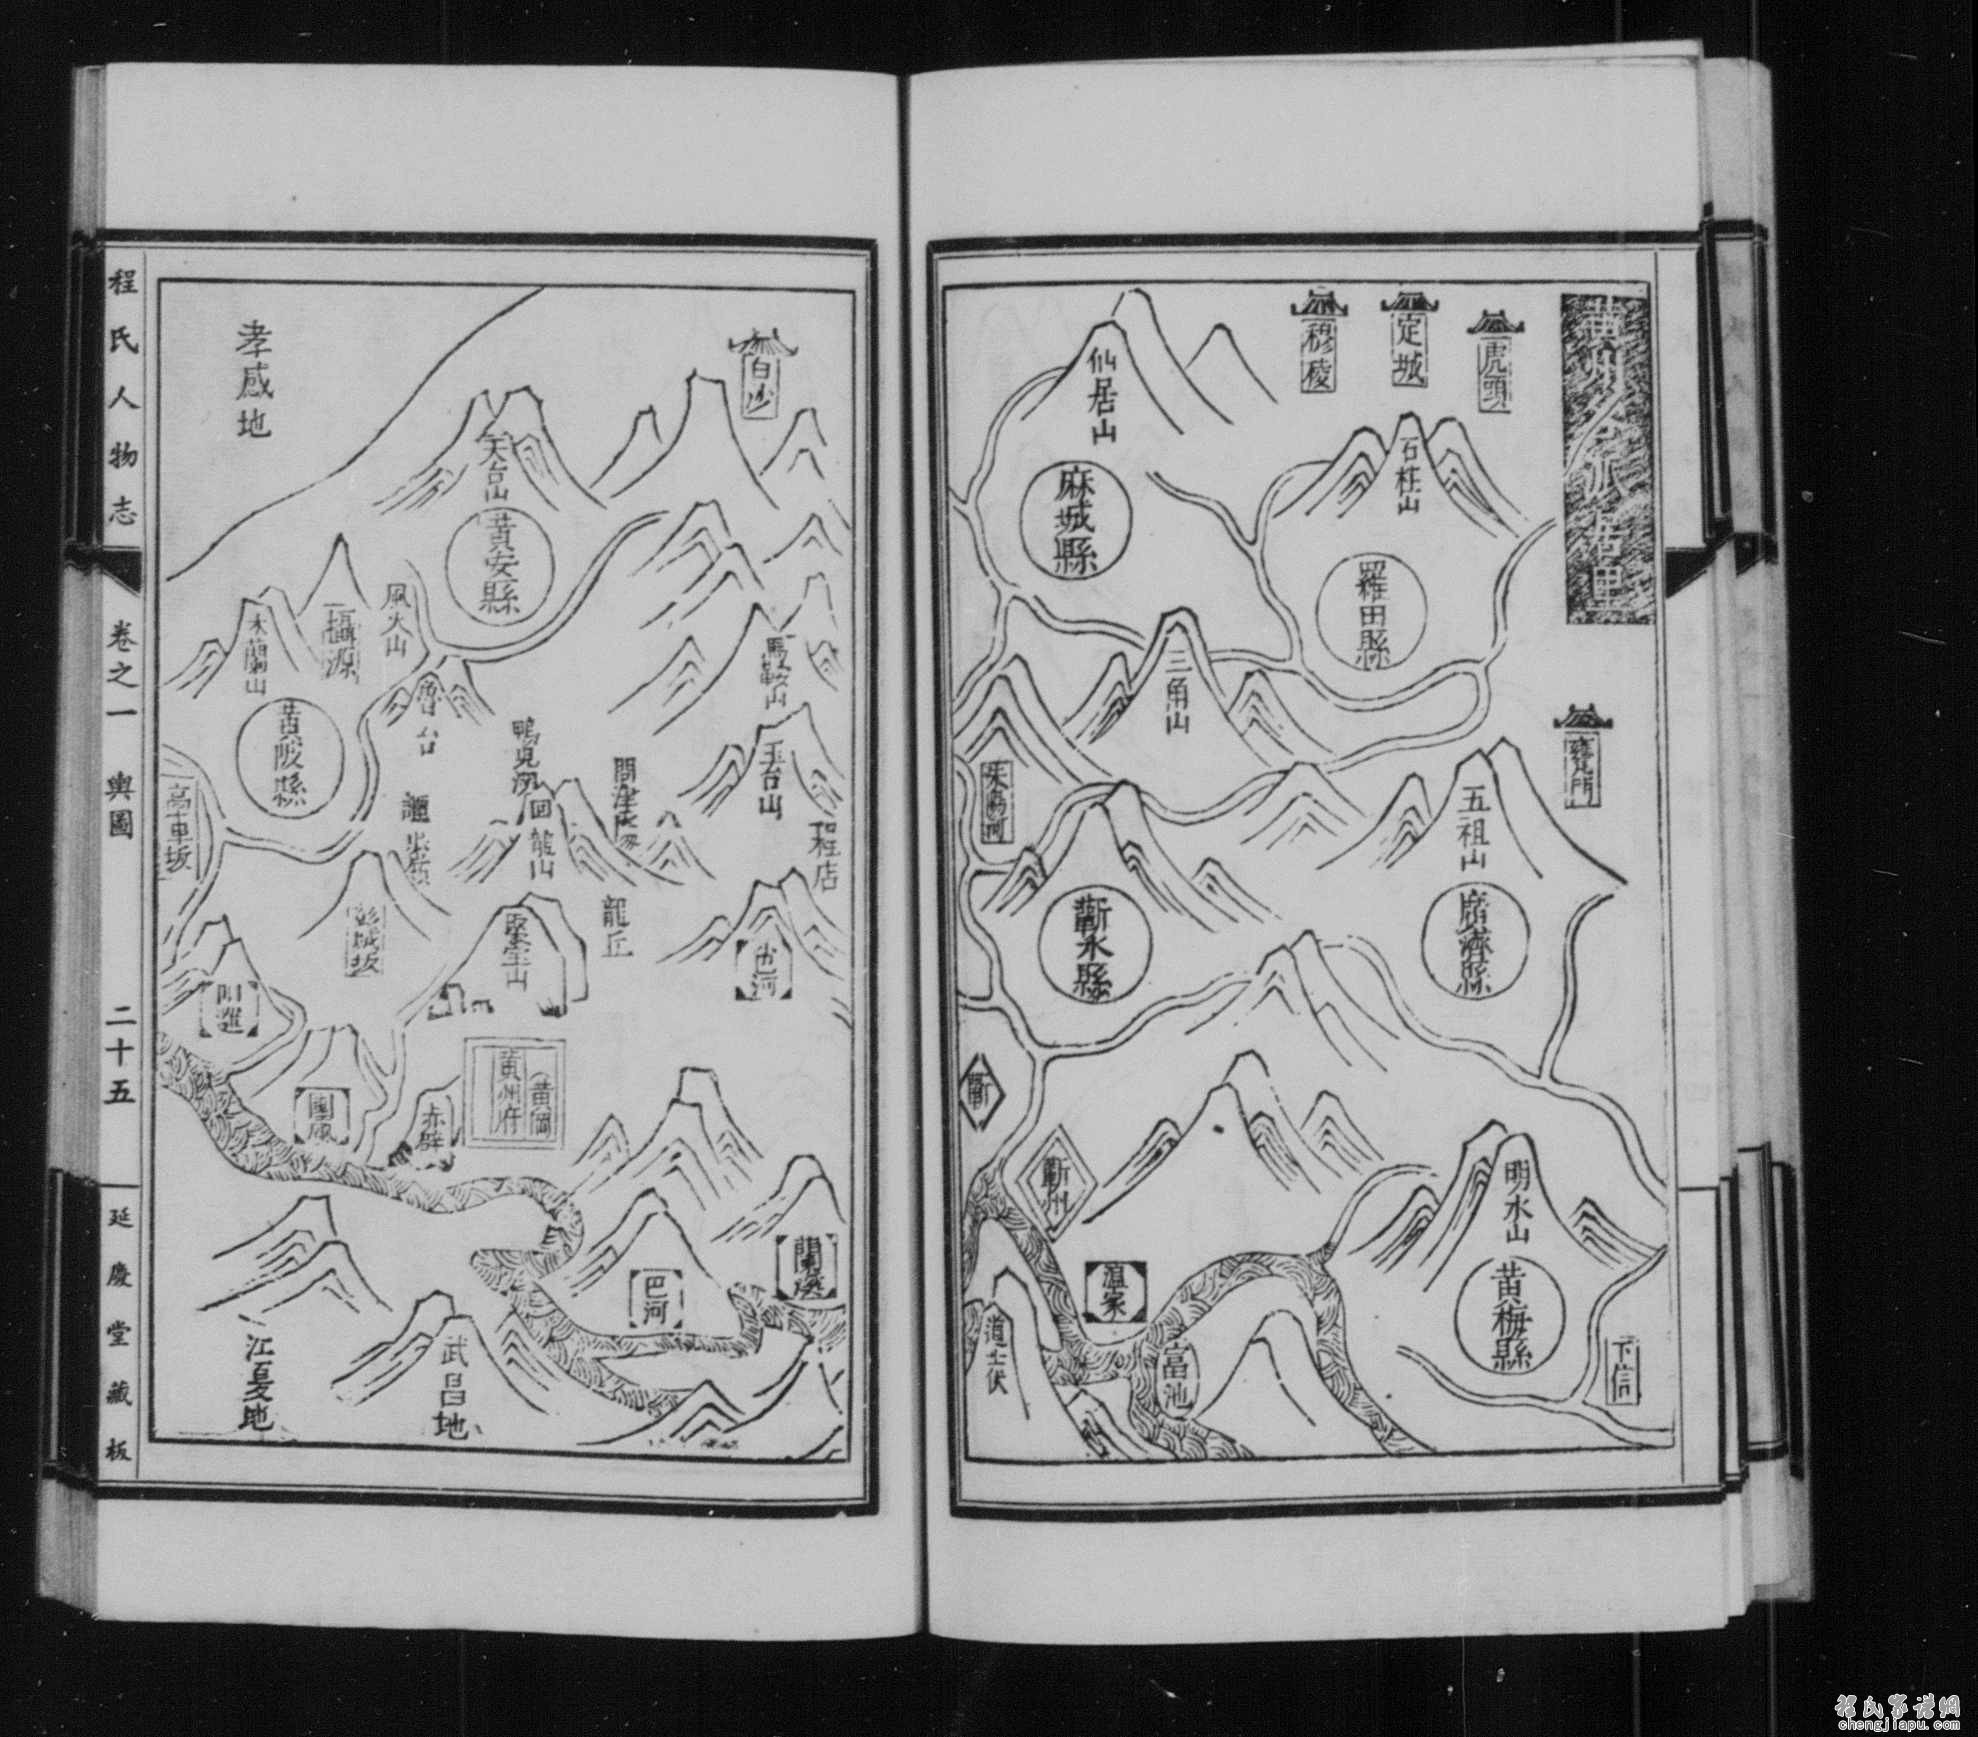 虎頭
定城
穆陵
仙居山
石柱山
麻城縣
羅田縣
三角山
甕門
五祖山
蘄水縣
廣濟縣
蘄
蘄州
明水山
黃梅縣
下信
富池
道士洑
白沙
孝感地
天台山
黃安縣
風火山
灄源
木蘭山
黃陂縣
魯台
馬鞍山
玉台山
程店
鴨兒河
回龍山
龍丘
彭城坂
高車坂
陽邏
團風
赤壁
黃岡
黃州府
巴河
蘭溪
武昌地
江夏地
程氏人物志
卷之一 輿圖
二十五
延慶堂藏板
程氏家譜網
chengjiapu.com